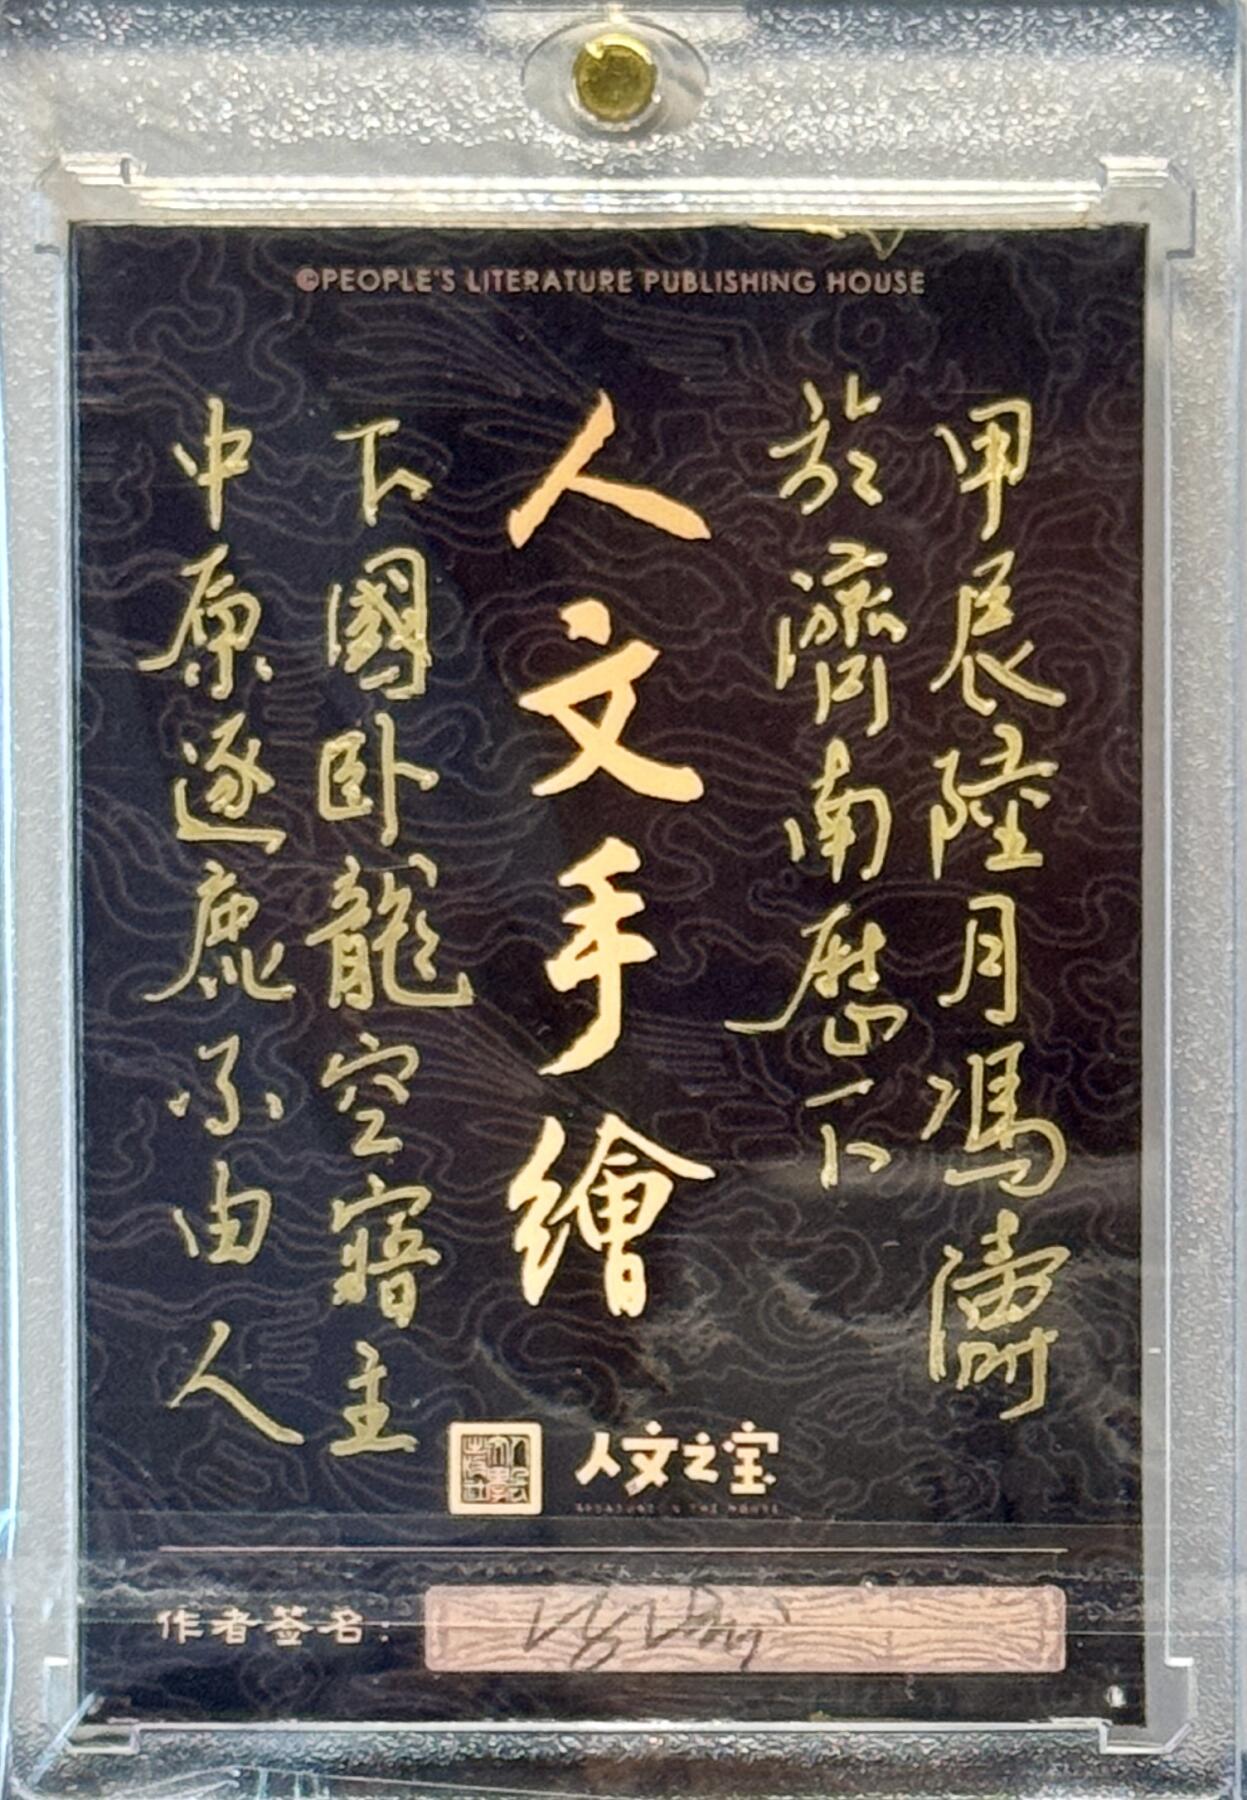 ©PEOPLE'S LITERATURE PUBLISHING HOUSE
甲辰陸月馮濤
於濟南歷下
人文手繪
下國卧龍空寤主
中原逐鹿不由人
人文之宝
作者签名: